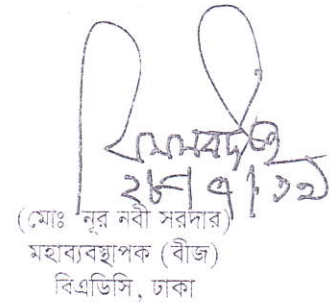 ২৮।৭।১৯
(মোঃ নূর নবী সরদার)
মহাব্যবস্থাপক (বীজ)
বিএডিসি, ঢাকা